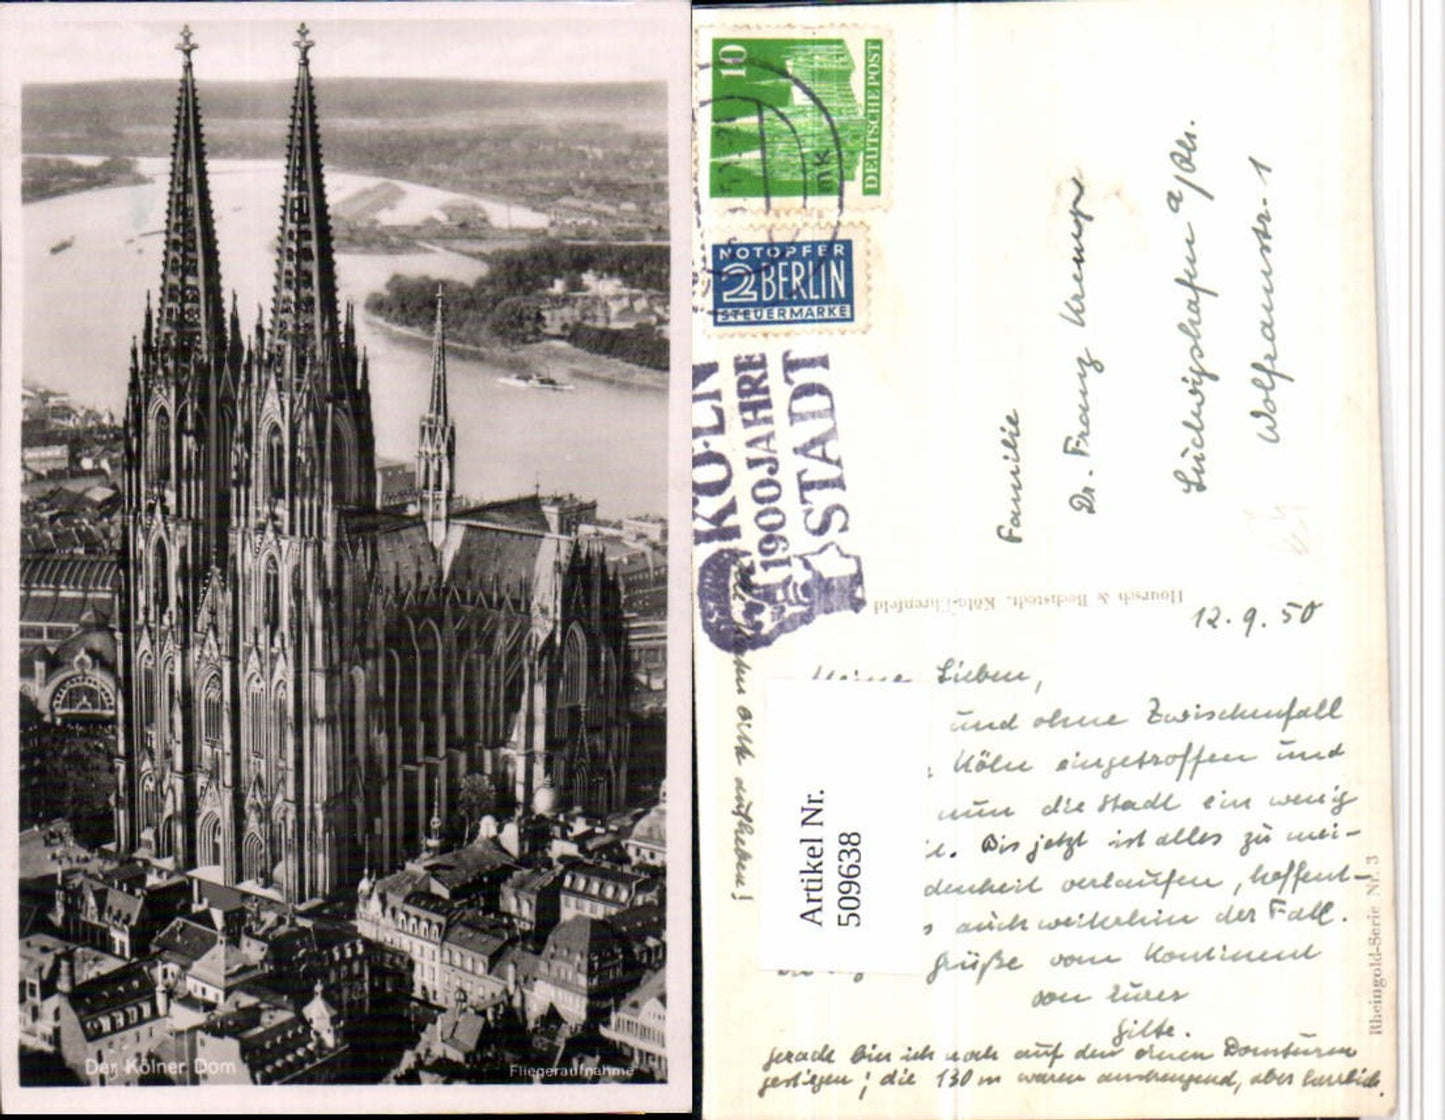 Der Kölner Dom
Fliegeraufnahme
10
DEUTSCHE POST
NOTOPFER
2 BERLIN
STEUERMARKE
KÖLN
1900 JAHRE
STADT
Familie
Dr. Franz Krempp
Ludwigshafen a/Rh.
Wolframstr. 1
Hoursch & Bechstedt, Köln-Ehrenfeld
12.9.50
Meine Lieben,
und ohne Zwischenfall
Köln eingetroffen und
nun die Stadt ein wenig
Bis jetzt ist alles zu mei-
denheit verlaufen, hoffent-
s auch weiterhin der Fall.
Grüße vom Kontinent
von Eurer
Gitte.
gerade bin ich noch auf den einen Domturm
gestiegen; die 130 m waren anstrengend, aber herrlich.
Karten bitte aufheben!
Artikel Nr.
509638
Rheingold-Serie Nr. 3